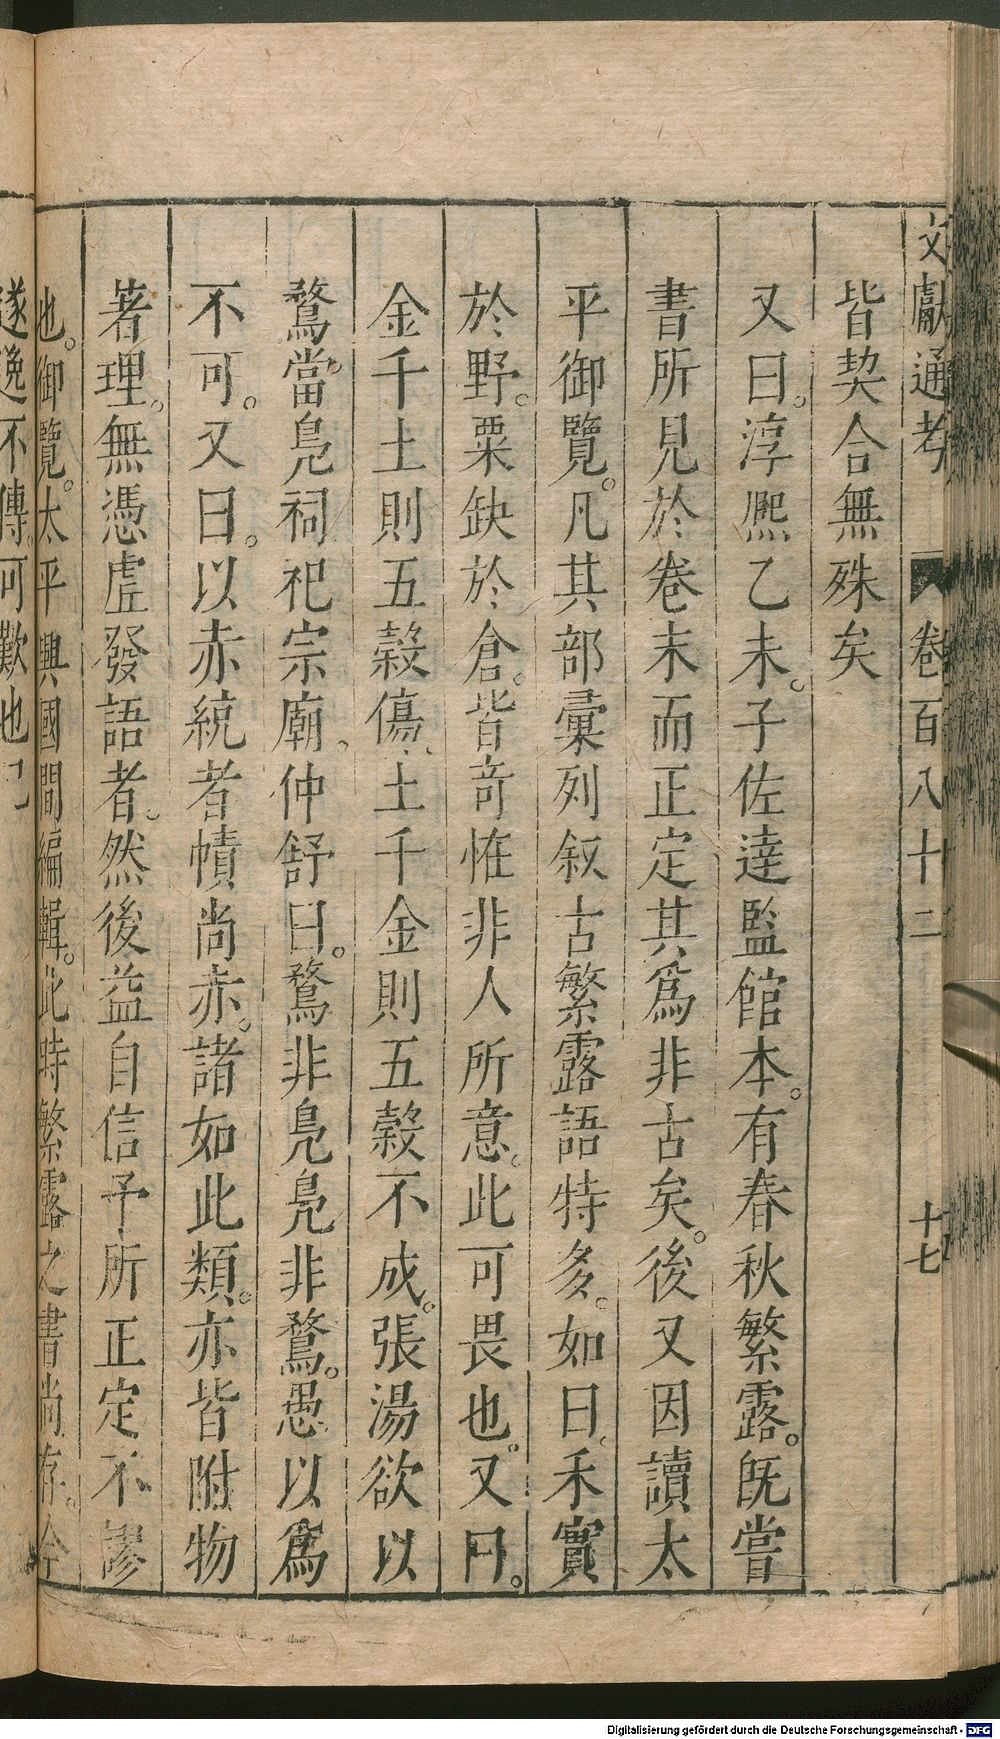 文獻通考 卷百八十二 十七
皆契合無殊矣
又曰。淳熈乙未。子佐達監館本。有春秋繁露。旣嘗
書所見於卷末而正定其爲非古矣。後又因讀太
平御覽。凡其部彙列叙古繁露語特多。如曰。禾實
於野。粟缺於倉。皆竒恠非人所意。此可畏也。又曰。
金千土則五穀傷、土千金則五穀不成。張湯欲以
鶩當。鳧祠祀宗廟、仲舒曰。鶩非鳧鳧非鶩。愚以爲
不可。又曰。以赤統者幘尚赤。諸如此類。亦皆附物
著理。無憑虗發語者。然後益自信予所正定不謬
也。御覽。太平興國間編輯。此時繁露之書尚存。今
遂逸不傳。可歎也已
Digitalisierung gefördert durch die Deutsche Forschungsgemeinschaft - DFG